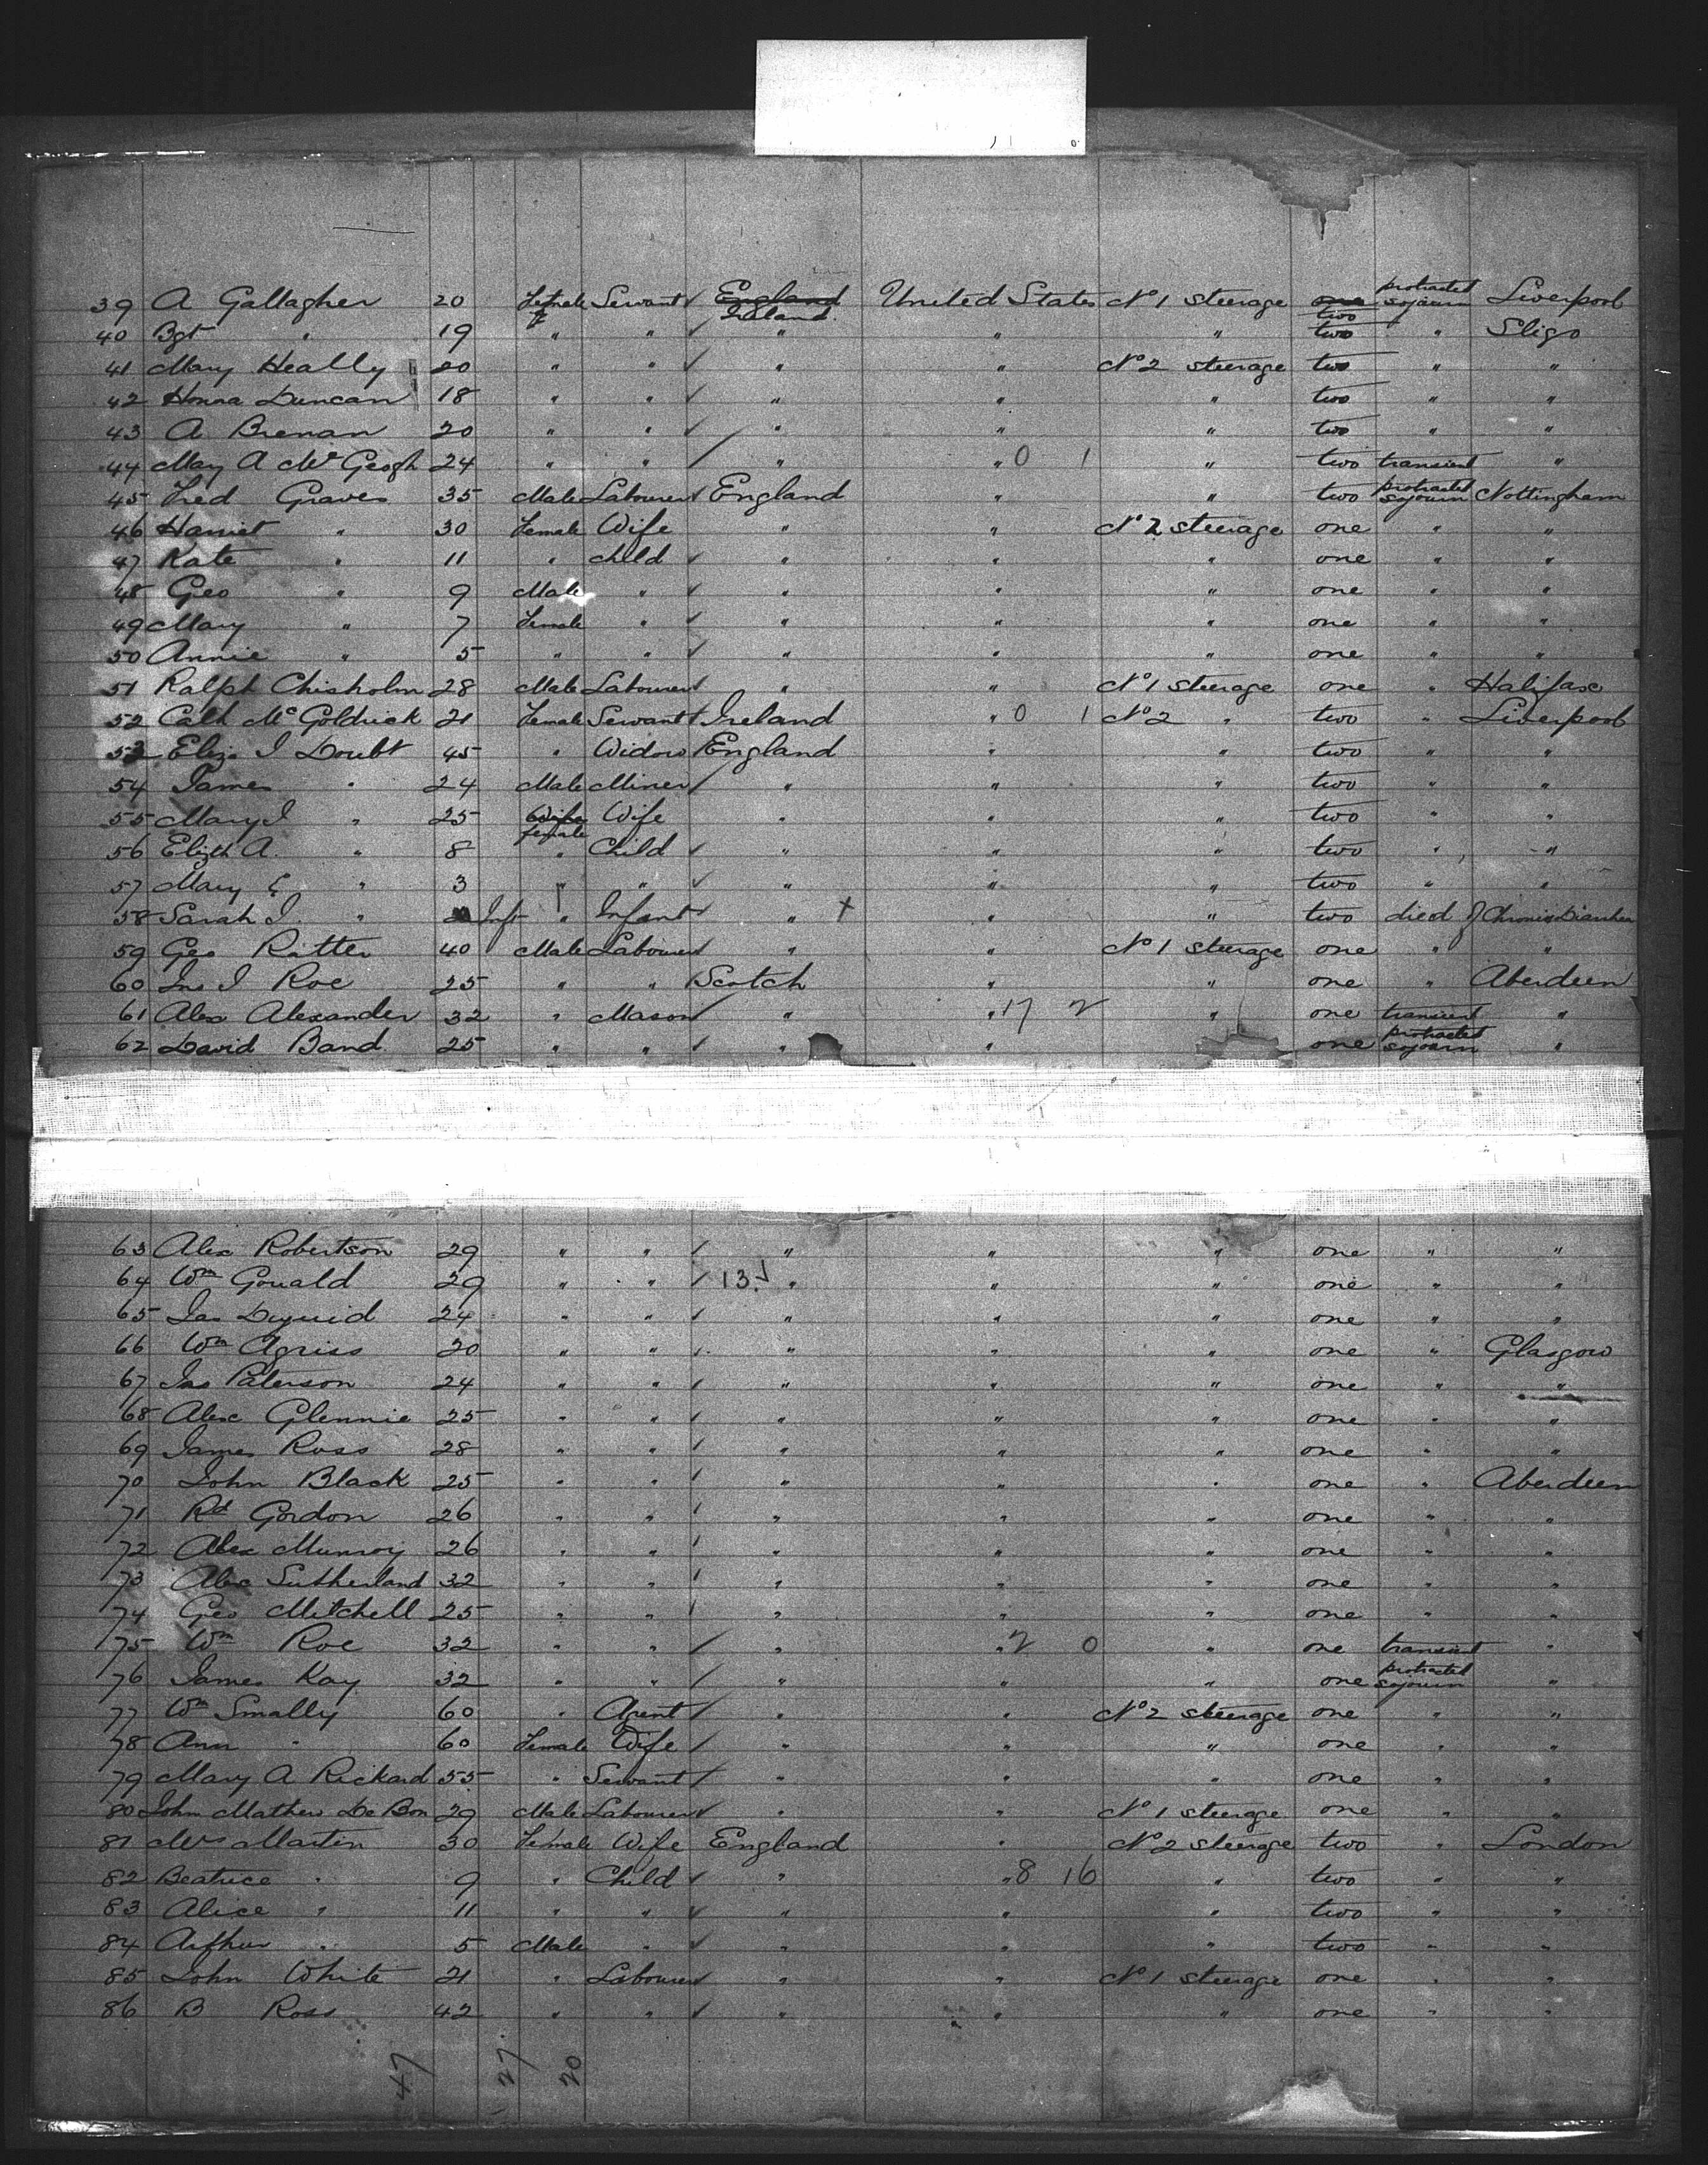 39 A Gallagher 20 Female Servant ✓ England Ireland United States No 1 steerage one two protracted sojourn Liverpool
40 Bgt " 19 " " ✓ " " " two " Sligo
41 Mary Heally 20 " " ✓ " " No 2 steerage two " "
42 Honna Duncan 18 " " ✓ " " " two " "
43 A Brenan 20 " " ✓ " " " two " "
44 Mary A McGeogh 24 " " / " " 0 1 " two transient "
45 Fred Graves 35 Male Labourer ✓ England " " two protracted sojourn Nottingham
46 Harriet " 30 Female Wife " " No 2 steerage one " "
47 Kate " 11 " child ✓ " " " one " "
48 Geo " 9 Male " ✓ " " " one " "
49 Mary " 7 Female " ✓ " " " one " "
50 Annie " 5 " " ✓ " " " one " "
51 Ralph Chisholm 28 Male Labourer ✓ " " No 1 steerage one " Halifax
52 Cath McGoldrick 21 Female Servant Ireland " 0 1 No 2 " two " Liverpool
53 Eliza J Doubt 45 " Widow England " " two " "
54 James " 24 Male Miner / " " " two " "
55 Mary J " 25 Wife female Wife " " " two " "
56 Elizth A " 8 " Child ✓ " " " two " "
57 Mary E " 3 " " ✓ " " " two " "
58 Sarah J " Inft " Infant ✓ " + " " two died of Chronic Diarrhea
59 Geo Ritter 40 Male Labourer ✓ " " No 1 steerage one " "
60 Jno J Roe 25 " " Scotch " " one " Aberdeen
61 Alex Alexander 32 " Mason ✓ " " 17 2 " one transient "
62 David Band 25 " " ✓ " " one protracted sojourn "
63 Alex Robertson 29 " " / " " " one " "
64 Wm Gouald 29 " " / 13 ✓ " " " one " "
65 Jas Duguid 24 " " / " " " one " "
66 Wm Agriss 20 " " / " " " one " Glasgow
67 Jas Paterson 24 " " / " " " one " "
68 Alex Glennie 25 " " / " " " one " "
69 James Ross 28 " " / " " " one " "
70 John Black 25 " " / " " " one " Aberdeen
71 Rd Gordon 26 " " / " " " one " "
72 Alex Munroy 26 " " / " " " one " "
73 Alex Sutherland 32 " " / " " " one " "
74 Geo Mitchell 25 " " / " " " one " "
75 Wm Roe 32 " " / " " 2 0 " one transient "
76 James Kay 32 " " / " " " one protracted sojourn "
77 Wm Smally 60 " Agent / " " No 2 steerage one " "
78 Ann " 60 Female Wife / " " " one " "
79 Mary A Rickard 55 " Servant / " " " one " "
80 John Mathew De Bon 29 Male Labourer ✓ " " No 1 steerage one " "
81 Mrs Martin 30 Female Wife England " No 2 steerage two " London
82 Beatrice " 9 " Child ✓ " " 8 16 " two " "
83 Alice " 11 " " ✓ " " " two " "
84 Arthur " 5 Male " ✓ " " " two " "
85 John White 21 " Labourer ✓ " " No 1 steerage one " "
86 B Ross 42 " " ✓ " " " one " "
47 27 20